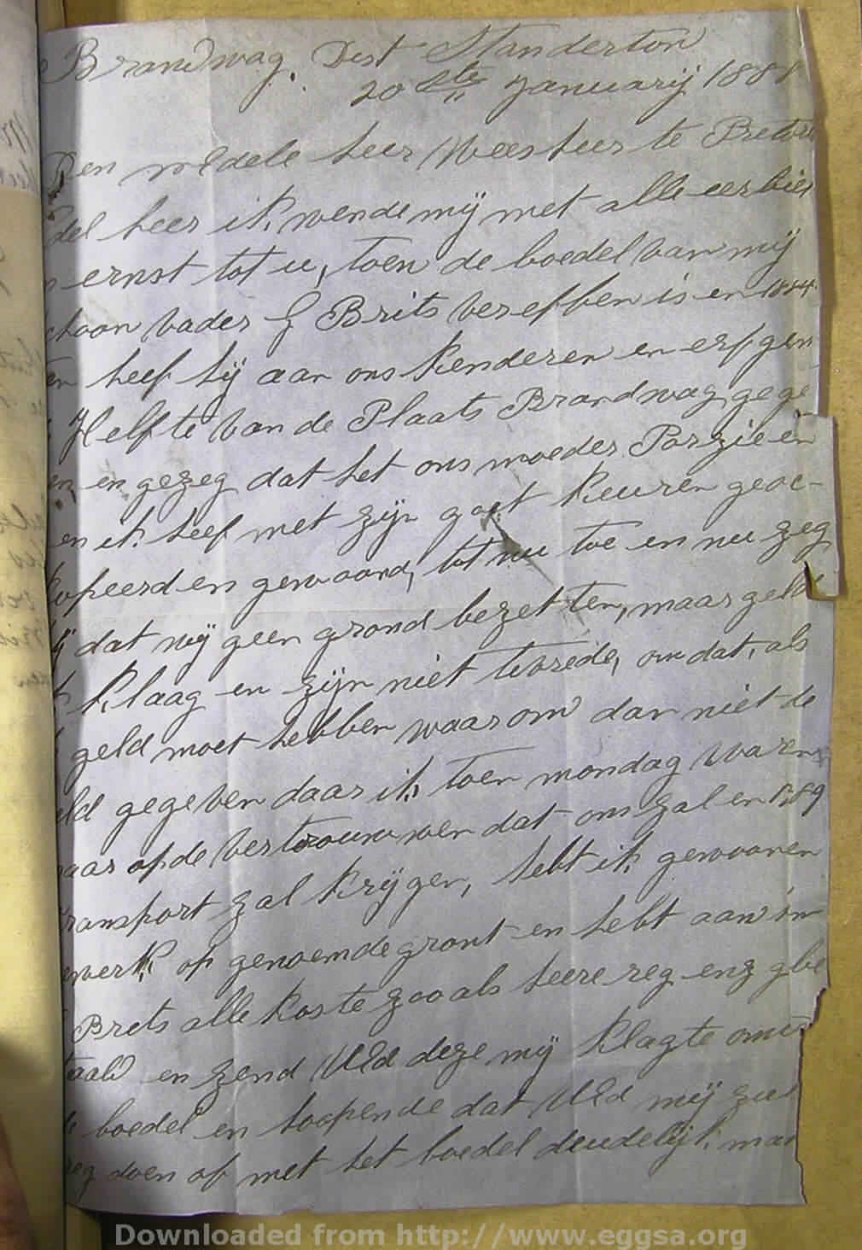 Brandwag. Dist Standerton
20 ste January 188
Den weldele heer Weesheer te Pretori
del heer ik wende mÿ met alle eerbie
ernst tot u, toen de boedel van mÿ
choon vader J Brits vereffen is en 1884
en heef hÿ aan ons kenderen en erfgen
Helfte van de Plaats Brandwag gege
en, en gezeg dat het ons moeder Porzie is
en ik heef met zÿn goet keuren geoc-
kopeerd en gewoond, tot nu toe en nu zeg
hÿ dat wÿ geen grond bezetten, maar geld
k klaag en zÿn niet tevrede, omdat, als
k geld moet hebben waarom dan niet de
eld gegeven daar ik toen mondag waren
maar op de vertrouwen dat ons zal en 1889
transport zal krÿgen, hebt ik gewoonen
ewerk op genoemde gront en hebt aan in
Brets alle koste zooals heere reg enz gbe
taald en zend UEd deze mÿ klagte om
boedel en hoopende dat UEd mÿ zul
reg doen of met het boedel deudelÿk maa
Downloaded from http://www.eggsa.org